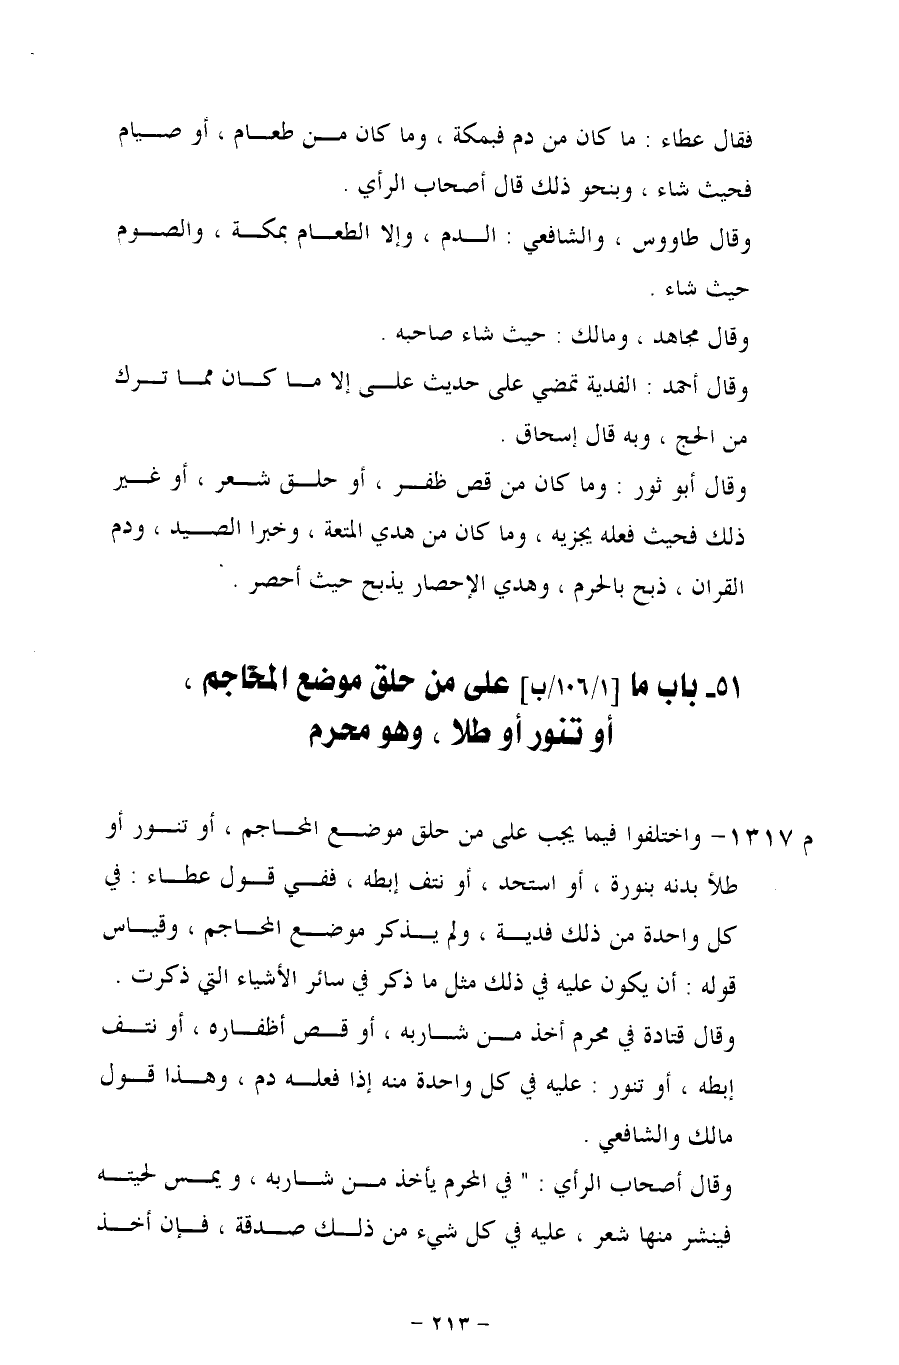 فقال عطاء : ما كان من دم فبمكة ، وما كان من طعام ، أو صيام
فحيث شاء ، وبنحو ذلك قال أصحاب الرأي .
وقال طاووس ، والشافعي : الدم ، وإلا الطعام بمكة ، والصوم
حيث شاء .
وقال مجاهد ، ومالك : حيث شاء صاحبه .
وقال أحمد : الفدية تمضي على حديث علي إلا ما كان مما ترك
من الحج ، وبه قال إسحاق .
وقال أبو ثور : وما كان من قص ظفر ، أو حلق شعر ، أو غير
ذلك فحيث فعله يجزيه ، وما كان من هدي المتعة ، وخبرا الصيد ، ودم
القران ، ذبح بالحرم ، وهدي الإحصار يذبح حيث أحصر .
٥١ـ باب ما [١٠٦/١/ب] على من حلق موضع المحاجم ،
أو تنور أو طلا ، وهو محرم
م ١٣١٧ – واختلفوا فيما يجب على من حلق موضع المحاجم ، أو تنور أو
طلأ بدنه بنورة ، أو استحد ، أو نتف إبطه ، ففي قول عطاء : في
كل واحدة من ذلك فدية ، ولم يذكر موضع المحاجم ، وقياس
قوله : أن يكون عليه في ذلك مثل ما ذكر في سائر الأشياء التي ذكرت .
وقال قتادة في محرم أخذ من شاربه ، أو قص أظفاره ، أو نتف
إبطه ، أو تنور : عليه في كل واحدة منه إذا فعله دم ، وهذا قول
مالك والشافعي .
وقال أصحاب الرأي : " في المحرم يأخذ من شاربه ، و يمس لحيته
فينشر منها شعر ، عليه في كل شيء من ذلك صدقة ، فإن أخذ
– ٢١٣ –